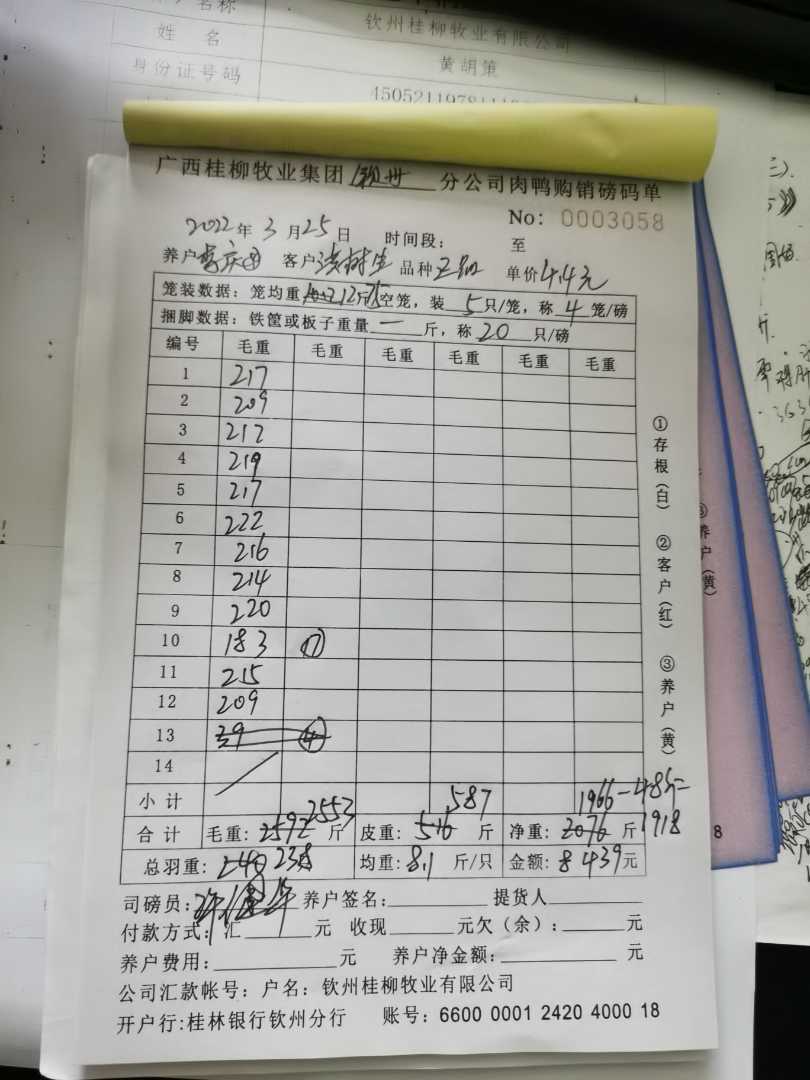 名称
钦州桂柳牧业有限公司
姓 名
黄胡策
身份证号码
广西桂柳牧业集团 钦州 分公司肉鸭购销磅码单
No: 0003058
2022年3月25日 时间段: 至
养户 客户 洪树生 品种 单价4.4元
笼装数据: 笼均重 空笼, 装 5 只/笼, 称 4 笼/磅
捆脚数据: 铁筐或板子重量 一 斤, 称 20 只/磅
编号 毛重 毛重 毛重 毛重 毛重 毛重
1 217
2 209
3 212
4 219
5 217
6 222
7 216
8 214
9 220
10 183 ⑰
11 215
12 209
13 39 ④
14
小计 2553 587 1966-48斤=
合计 毛重: 2592 斤 皮重: 516 斤 净重: 2076 斤 1918
总羽重: 240 238 均重: 8.1 斤/只 金额: 8439元
司磅员: 养户签名: 提货人
付款方式: 汇 元 收现 元欠（余）: 元
养户费用: 元 养户净金额: 元
公司汇款帐号: 户名: 钦州桂柳牧业有限公司
开户行:桂林银行钦州分行 账号: 6600 0001 2420 4000 18
①存根（白） ②客户（红） ③养户（黄）